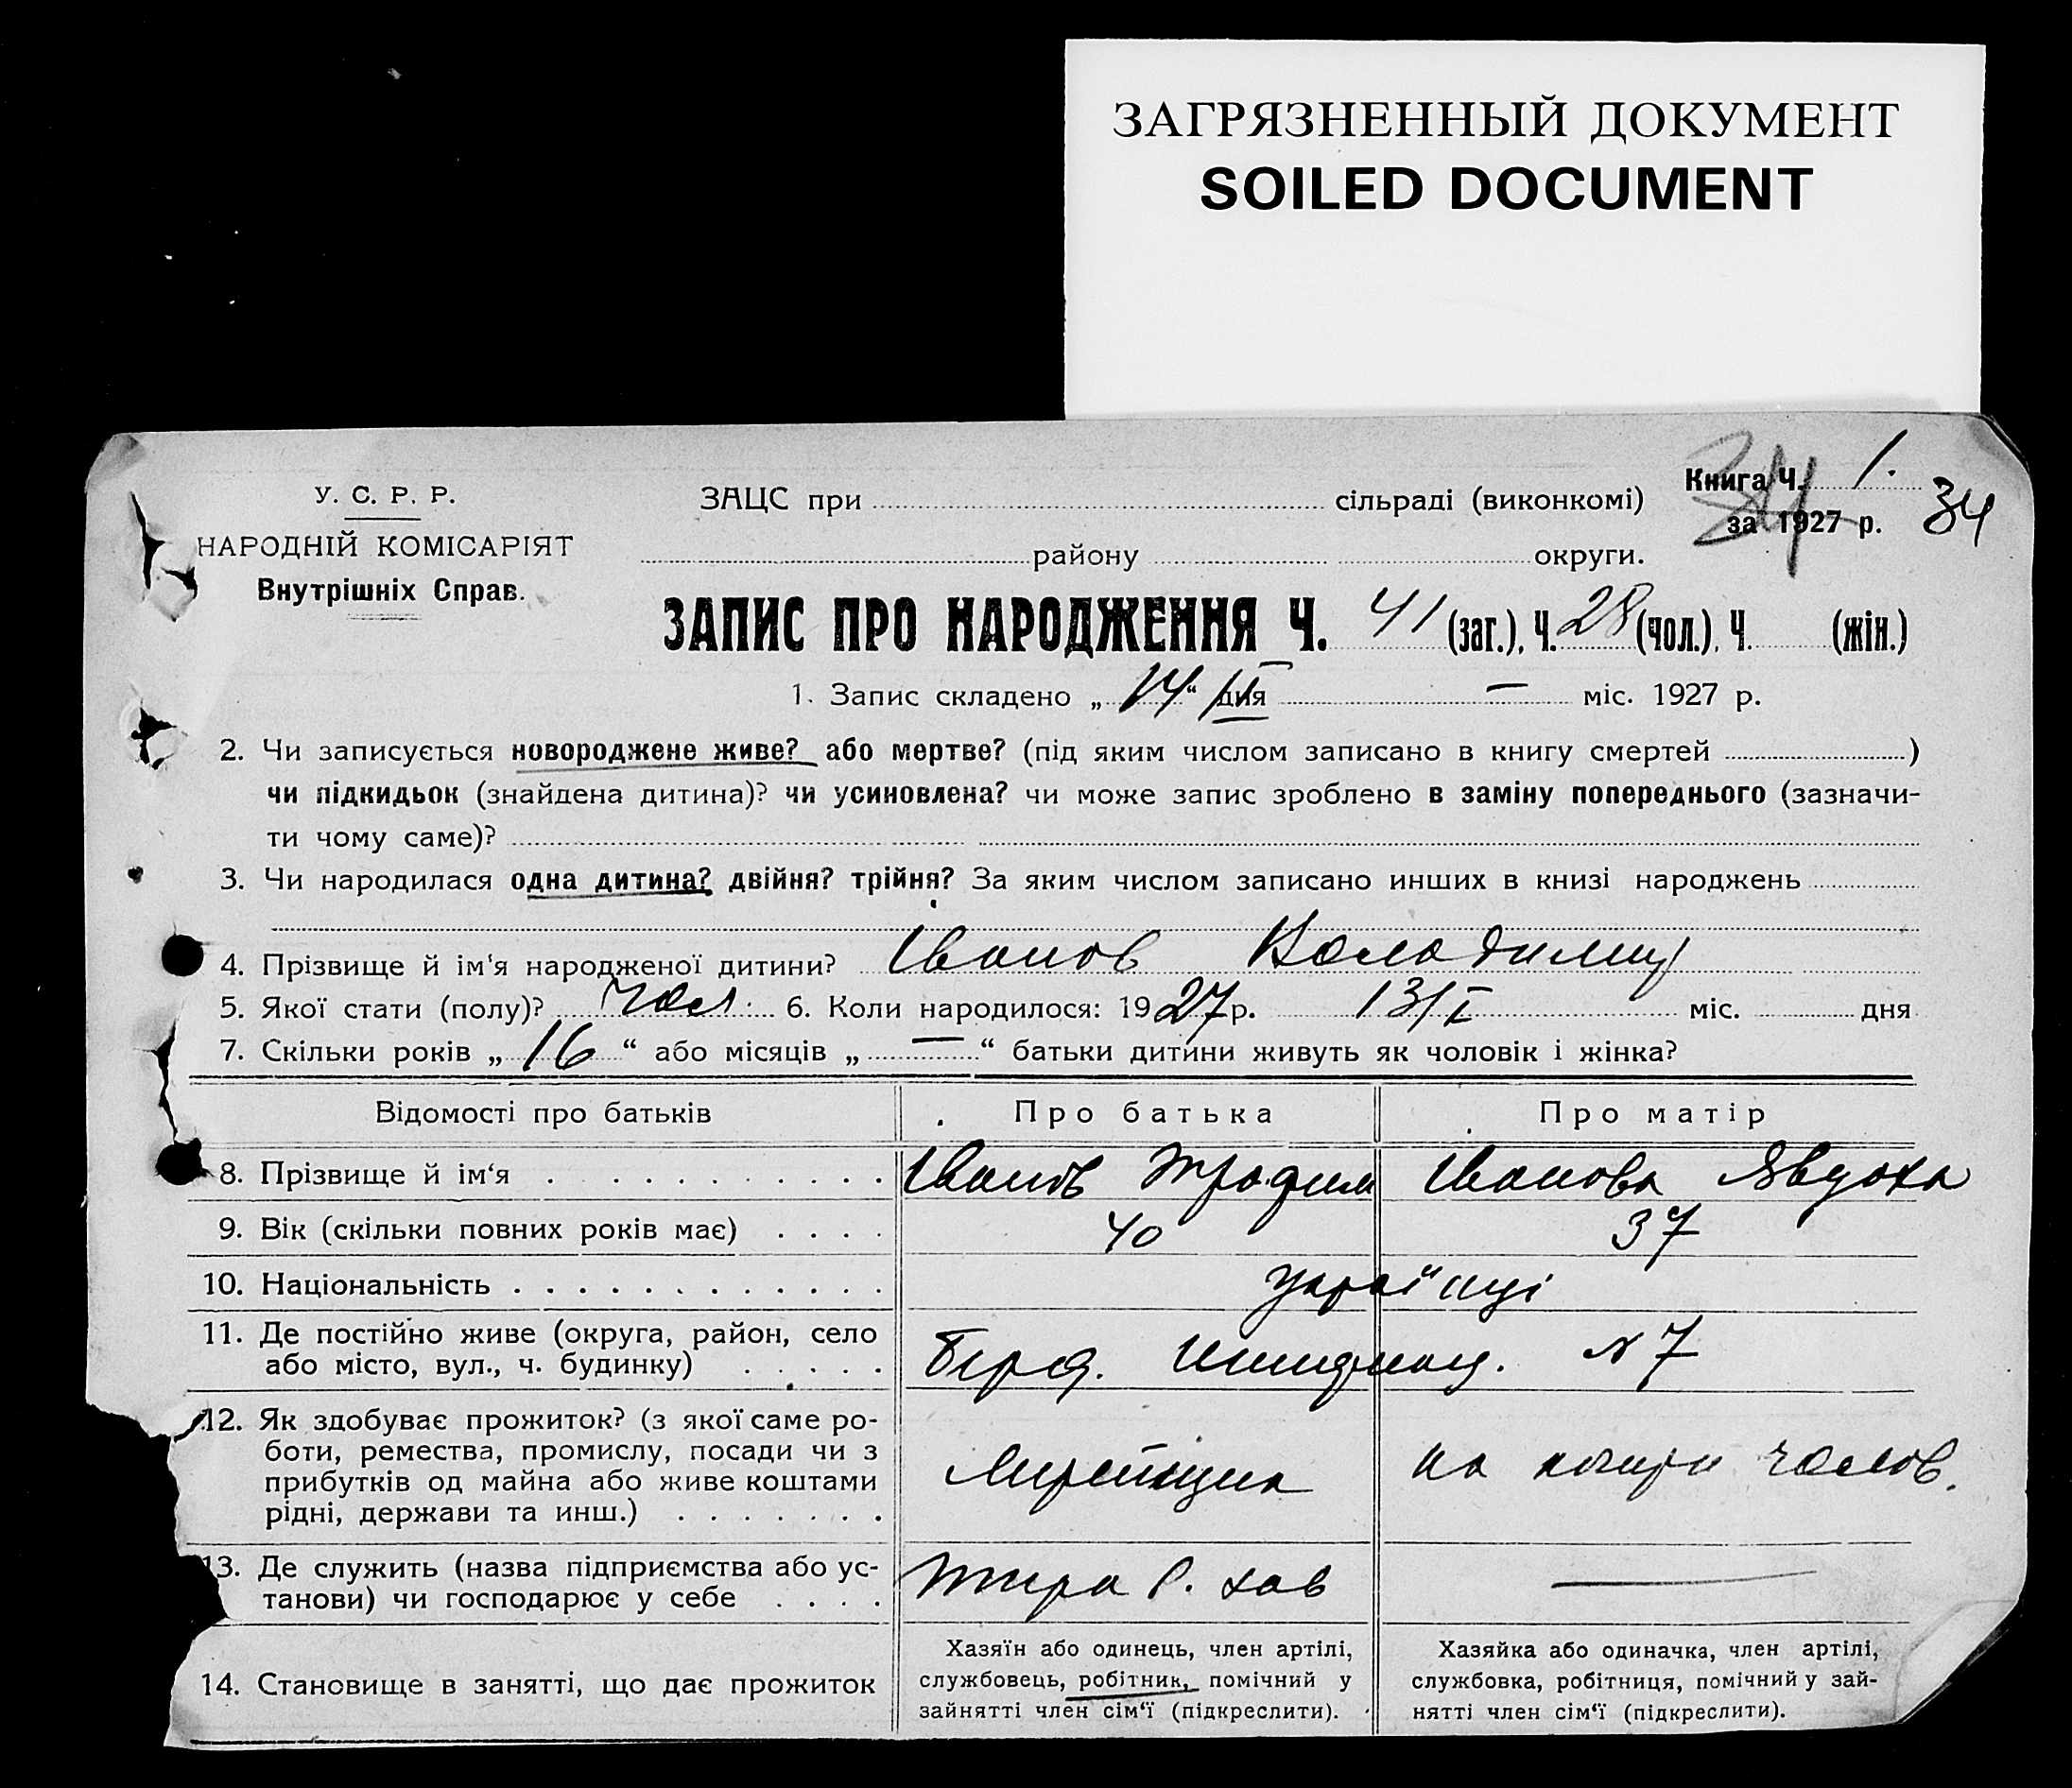 ЗАГРЯЗНЕННЫЙ ДОКУМЕНТ
SOILED DOCUMENT
У. С. Р. Р.
НАРОДНІЙ КОМІСАРІЯТ
Внутрішніх Справ.
ЗАЦС при сільраді (виконкомі)
району округи.
Книга Ч. 1.
за 1927 р. 34
ЗАПИС ПРО НАРОДЖЕННЯ Ч. 41 (заг.), Ч. 28 (чол.), Ч. (жін.)
1. Запис складено „ 14 “ дня — міс. 1927 р.
2. Чи записується новороджене живе? або мертве? (під яким числом записано в книгу смертей )
чи підкидьок (знайдена дитина)? чи усиновлена? чи може запис зроблено в заміну попереднього (зазначи-
ти чому саме)?
3. Чи народилася одна дитина? двійня? трійня? За яким числом записано инших в книзі народжень
4. Прізвище й ім'я народженої дитини? Іванов Володимир
5. Якої стати (полу)? чол. 6. Коли народилося: 1927 р. 13/I міс. дня
7. Скільки років „ 16 “ або місяців „ — “ батьки дитини живуть як чоловік і жінка?
Відомості про батьків Про батька Про матір
8. Прізвище й ім'я Іванов Трофим Іванова Явдоха
9. Вік (скільки повних років має) 40 37
10. Національність українці
11. Де постійно живе (округа, район, село
або місто, вул., ч. будинку) № 7
12. Як здобуває прожиток? (з якої саме ро-
боти, ремества, промислу, посади чи з
прибутків од майна або живе коштами
рідні, держави та инш.)
на чолов.
13. Де служить (назва підприємства або ус-
танови) чи господарює у себе —
14. Становище в занятті, що дає прожиток
Хазяїн або одинець, член артілі,
службовець, робітник, помічний у
зайнятті член сім'ї (підкреслити).
Хазяйка або одиначка, член артілі,
службовка, робітниця, помічний у зай-
нятті член сім'ї (підкреслити).